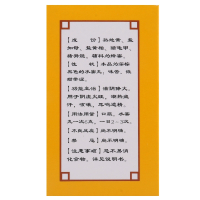 【成　份】熟地黄、盐
知母、盐黄柏、醋龟甲、
猪脊髓。辅料为蜂蜜。
【性　状】本品为棕褐
黑色的水蜜丸；味苦、微
甜带涩。
【功能主治】滋阴降火。
用于阴虚火旺，潮热盗
汗，咳嗽，耳鸣遗精。
【用法用量】口服，水蜜
丸一次6克，一日2~3次。
【不良反应】尚不明确。
【禁　忌】尚不明确。
【注意事项】忌不易消
化食物，详见说明书。